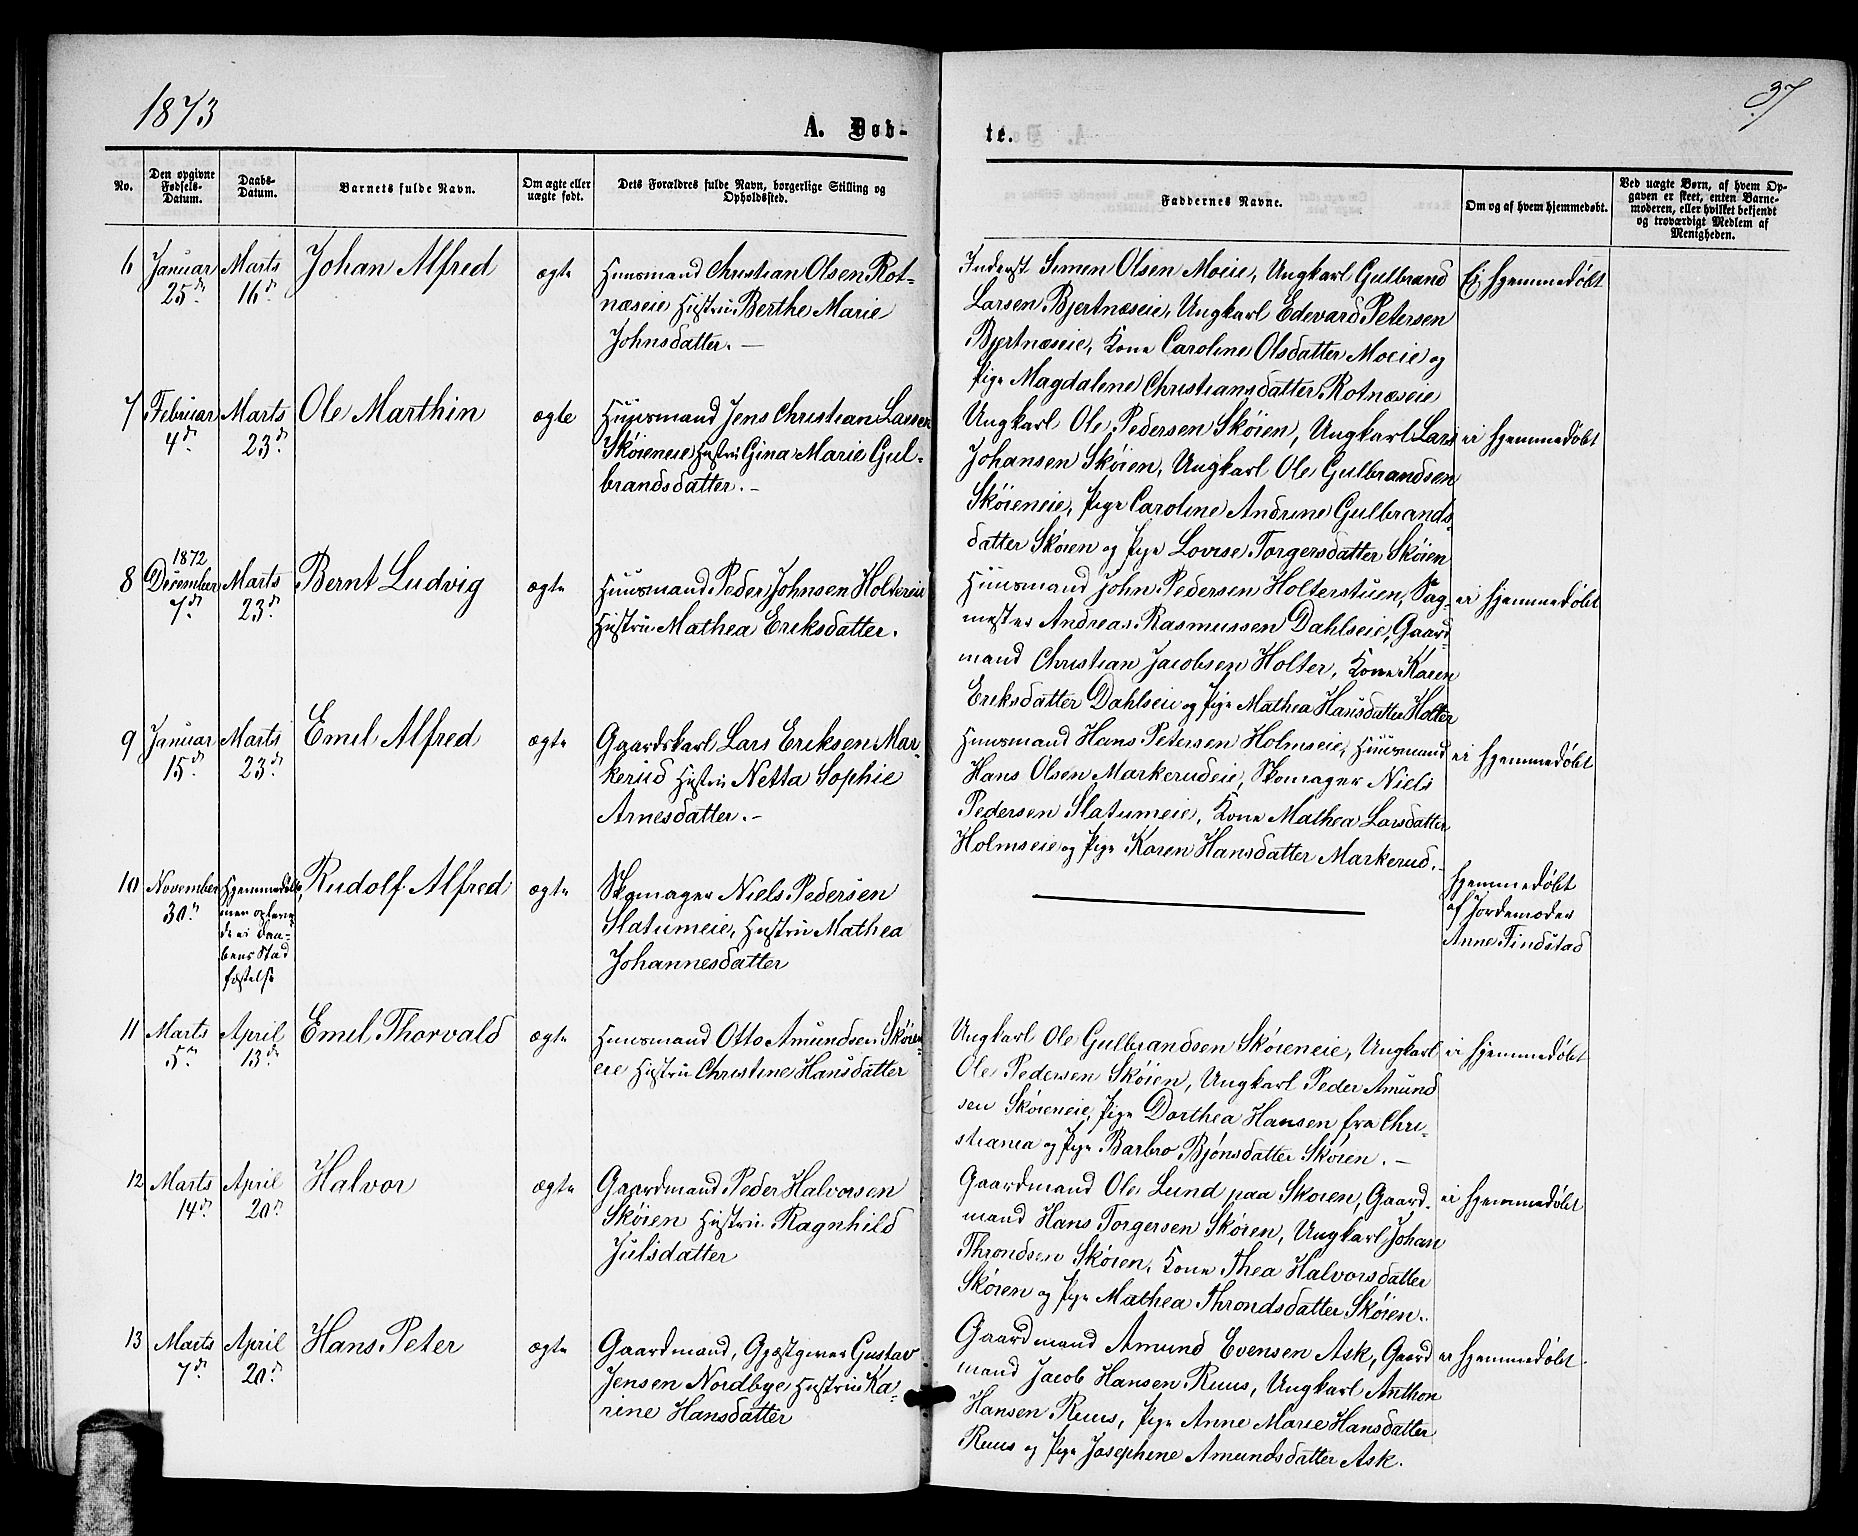 1873
37
A. Døb-
te.
No.
Den opgivne Fødsels-Datum.
Daabs-Datum.
Barnets fulde Navn.
Om ægte eller uægte født.
Dets Forældres fulde Navn, borgerlige Stilling og Opholdssted.
Faddernes Navne.
Om og af hvem hjemmedøbt.
Ved uægte Børn, af hvem Opgaven er skeet, enten Barnemoderen, eller hvilket bekjendt og troværdigt Medlem af Menigheden.
6 Januar 25de Marts 16de Johan Alfred ægte
Huusmand Christian Olsen Rot-
næseie Hustru Berthe Marie
Johnsdatter. —
Inderst Simen Olsen Moeie, Ungkarl Gulbrand
Larsen Bjertnæseie, Ungkarl Edevard Petersen
Bjertnæseie, Kone Caroline Olsdatter Moeie og
Pige Magdalene Christiansdatter Rotnæseie
Ej hjemmedøbt
7 Februar 4de Marts 23de Ole Marthin ægte
Huusmand Jens Christian Larsen
Skøieneie Hustru Gina Marie Gul-
brandsdatter. —
Ungkarl Ole Pedersen Skøien, Ungkarl Lars
Johansen Skøien, Ungkarl Ole Gulbrandsen
Skøieneie, Pige Caroline Andrine Gulbrands-
datter Skøien og Pige Lovise Torgersdatter Skøien
ei hjemmedøbt
8 1872 December 7de Marts 23de Bernt Ludvig ægte
Huusmand Peder Johnsen Holtereie
Hustru Mathea Eriksdatter.
Huusmand John Pedersen Holterstuen, Sag-
mester Andreas Rasmussen Dahlseie, Gaard-
mand Christian Jacobsen Holter, Kone Karen
Eriksdatter Dahlseie og Pige Mathea Hansdatter Holter
ei hjemmedøbt
9 Januar 15de Marts 23de Emil Alfred ægte
Gaardskarl Lars Eriksen Mar-
kerud Hustru Netta Sophie
Arnesdatter. —
Huusmand Hans Petersen Holmseie, Huusmand
Hans Olsen Markerudeie, Skomager Niels
Pedersen Slatumeie, Kone Mathea Larsdatter
Holmseie og Pige Karen Hansdatter Markerud. —
ei hjemmedøbt
10 November 30te
Hjemmedøbt,
men
de ei Daa-
bens Stad
fæstelse
Rudolf Alfred ægte
Skomager Niels Pedersen
Slatumeie, Hustru Mathea
Johannesdatter
hjemmedøbt
af Jordemoder
Anne Tindstad
11 Marts 5te April 13de Emil Thorvald ægte
Huusmand Otto Amundsen Skøien-
eie Hustru Christine Hansdatter
Ungkarl Ole Gulbrandsen Skøieneie, Ungkarl
Ole Pedersen Skøien, Ungkarl Peder Amund
sen Skøieneie, Pige Dorthea Hansen fra Chri-
stiania og Pige Barbro Bjønsdatter Skøien. —
ei hjemmedøbt
12 Marts 14de April 20de Halvor ægte
Gaardmand Peder Halvorsen
Skøien Hustru Ragnhild
Julsdatter
Gaardmand Ole Lund paa Skøien, Gaard-
mand Hans Torgersen Skøien, Ungkarl Johan
Throndsen Skøien, Kone Thea Halvorsdatter
Skøien og Pige Mathea Throndsdatter Skøien.
ei hjemmedøbt
13 Marts 7de April 20de Hans Peter ægte
Gaardmand, Gjæstgiver Gustav
Jensen Nordbye Hustru Ka-
rine Hansdatter
Gaardmand Amund Evensen Ask, Gaard
mand Jacob Hansen Ruus, Ungkarl Anthon
Hansen Ruus, Pige Anne Marie Hansdatter
Ruus og Pige Josephine Amundsdatter Ask.
ei hjemmedøbt.